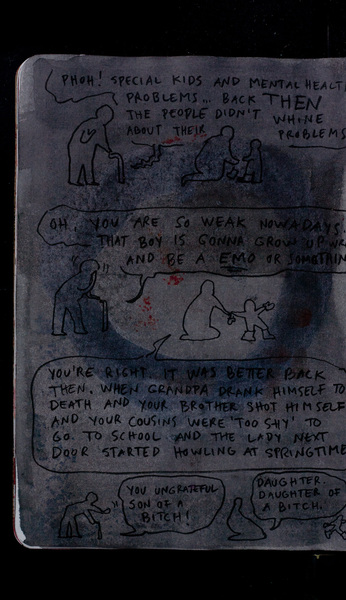 PHOH! SPECIAL KIDS AND MENTAL HEALTH
PROBLEMS... BACK THEN
THE PEOPLE DIDN'T WHINE
ABOUT THEIR
PROBLEMS
OH, YOU ARE SO WEAK NOWADAYS.
THAT BOY IS GONNA GROW UP
AND BE A EMO OR
YOU'RE RIGHT. IT WAS BETTER BACK
THEN. WHEN GRANDPA DRANK HIMSELF TO
DEATH AND YOUR BROTHER SHOT HIMSELF
AND YOUR COUSINS WERE 'TOO SHY' TO
GO TO SCHOOL AND THE LADY NEXT
DOOR STARTED HOWLING AT SPRINGTIME
YOU UNGRATEFUL
SON OF A
BITCH!
DAUGHTER.
DAUGHTER OF
A BITCH.